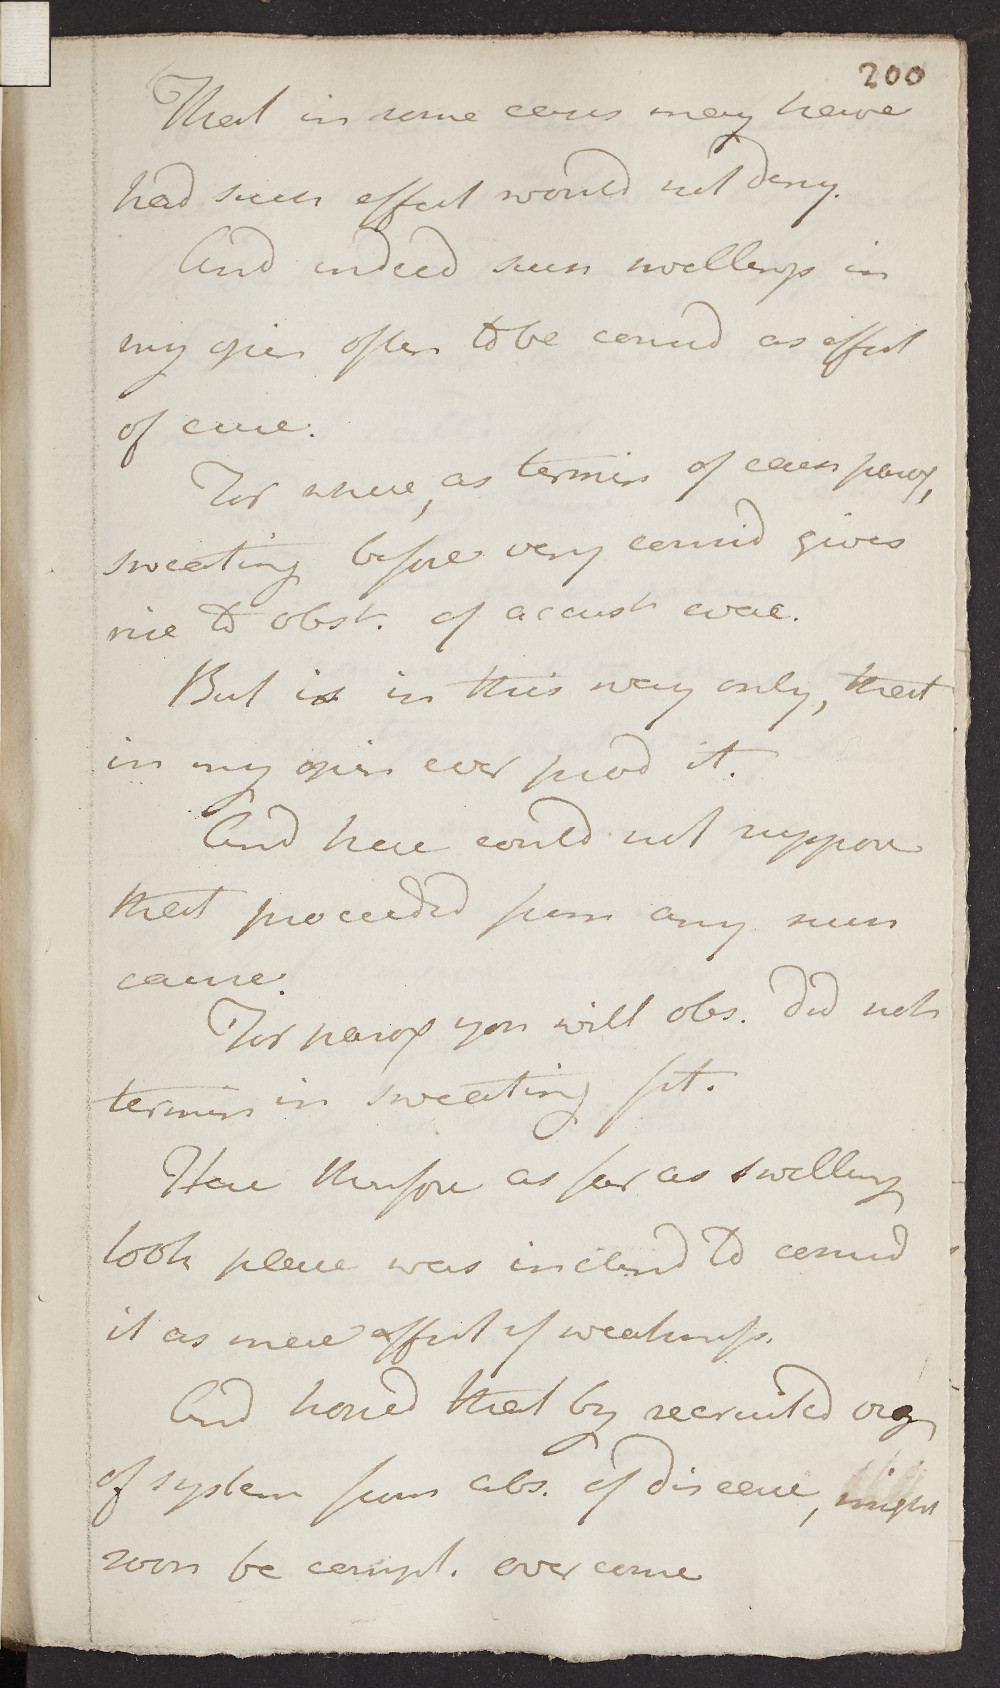 200
That in some cases may have
had such effect would not deny.
And indeed such swellings in
my opin often to be consid as effect
of cure.
For where, as termin of each parox,
sweating before very consid gives
rise to obst. of accust evac.
But is in this way only, that
in my opin ever prod it.
And here could not suppose
that proceeded from any such
cause.
For parox you will obs. did not
termin in sweating fit.
Here therefore as far as swelling
took place was inclind to consid
it as mere effect of weakness.
And hoped that by recruited
of system from abs. of disease, might
soon be compl. overcome